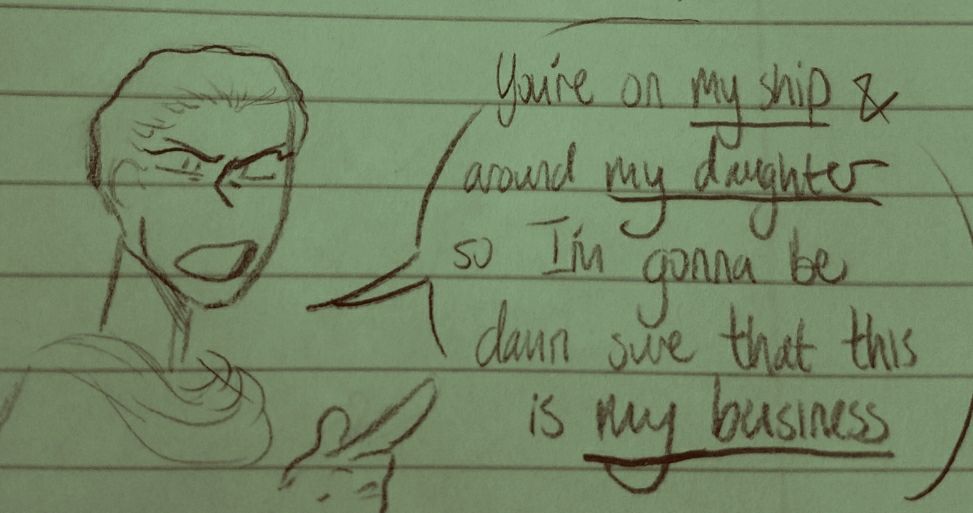 You're on my ship &
around my daughter
so I'm gonna be
damn sure that this
is my business